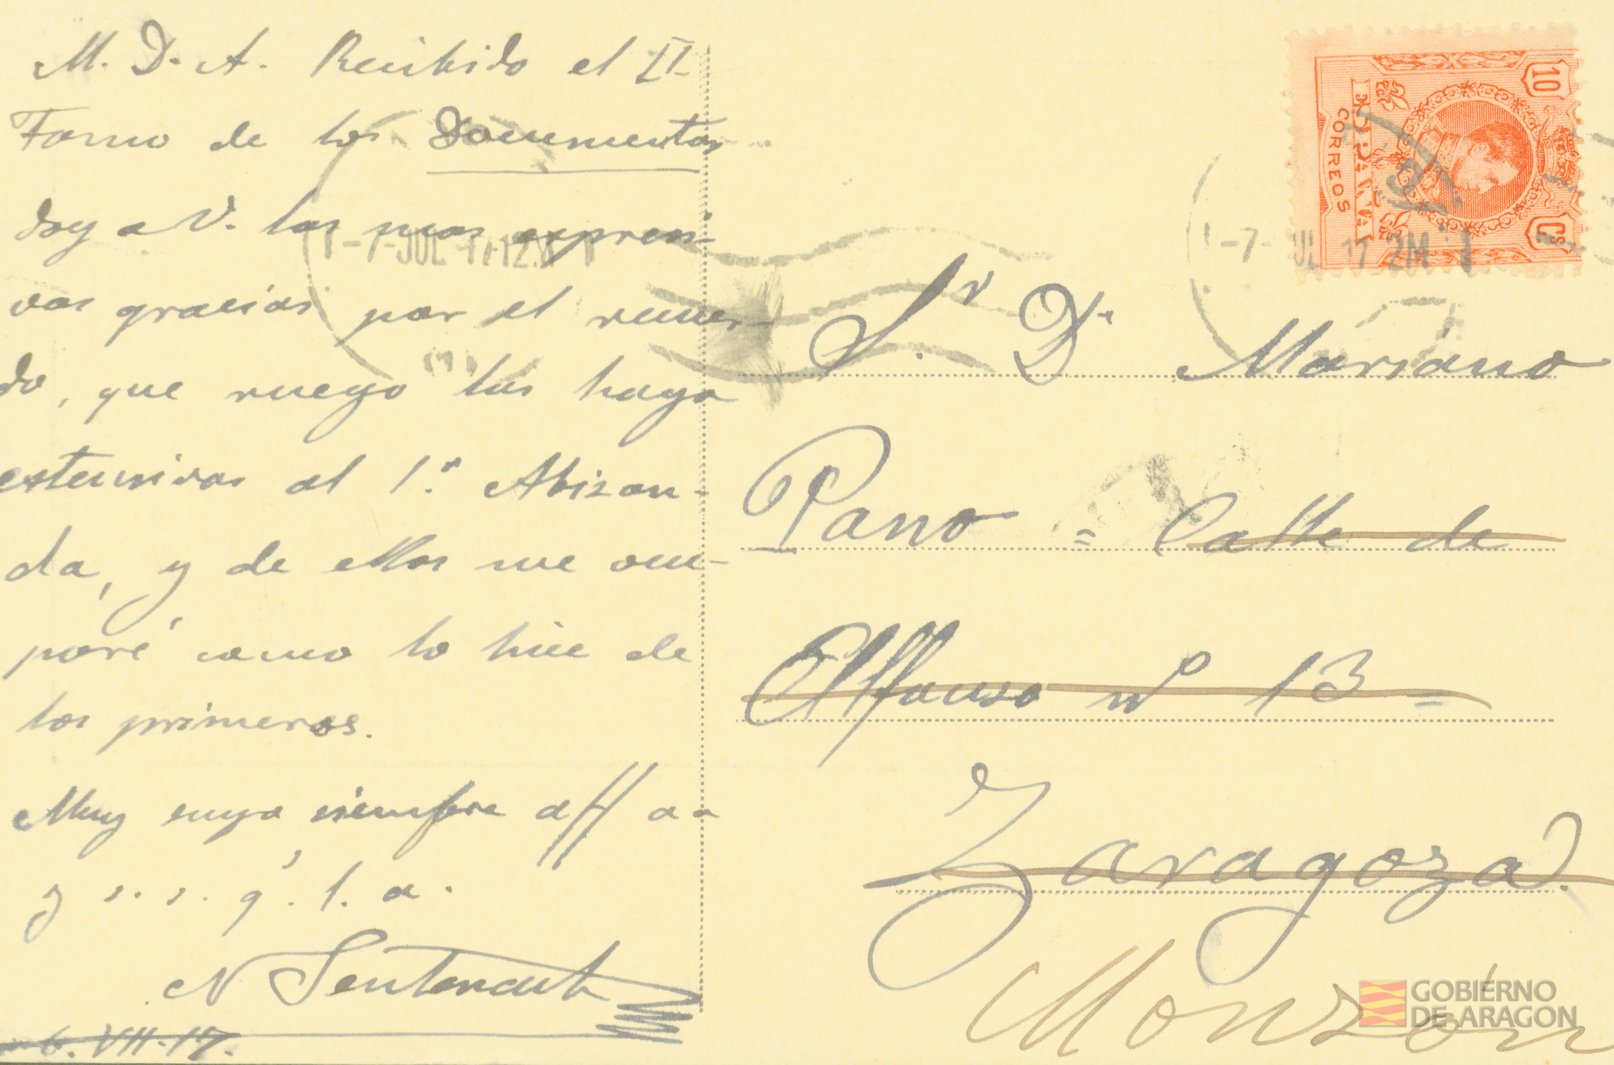 M. D. A. Recibido el II
Tomo de los Documentos
doy a V. las mas expresi-
vas gracias por el recuer-
do, que ruego las haga
extensivas al Sr. Abizan-
da, y de ellos me ocu-
paré como lo hice de
los primeros.
Muy suyo siempre aff
y s. s. q.
N Sentenach
6. VII. 17.
10 Cs
ESPAÑA
CORREOS
-7-JUL-17 12M
-7-JUL 17 2M
Sr. Dn. Mariano
Pano = Calle de
Alfonso nº 13 =
Zaragoza.
Monzón
GOBIERNO
DE ARAGON